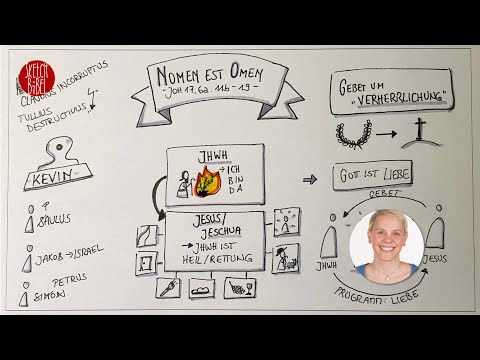 SKETCH
BIBEL
CLAUDIUS INCORRUPTUS
TULLIUS
DESTRUCTIVUS
KEVIN
SAULUS
JAKOB → ISRAEL
PETRUS
SIMON
NOMEN EST OMEN
- JOH 17, 6a. 11b - 19 -
JHWH
→ ICH
BIN
DA
JESUS/
JESCHUA
→ JHWH IST
HEIL/RETTUNG
GEBET UM
"VERHERRLICHUNG"
GOTT IST LIEBE
GEBET
JHWH
JESUS
PROGRAMM: LIEBE